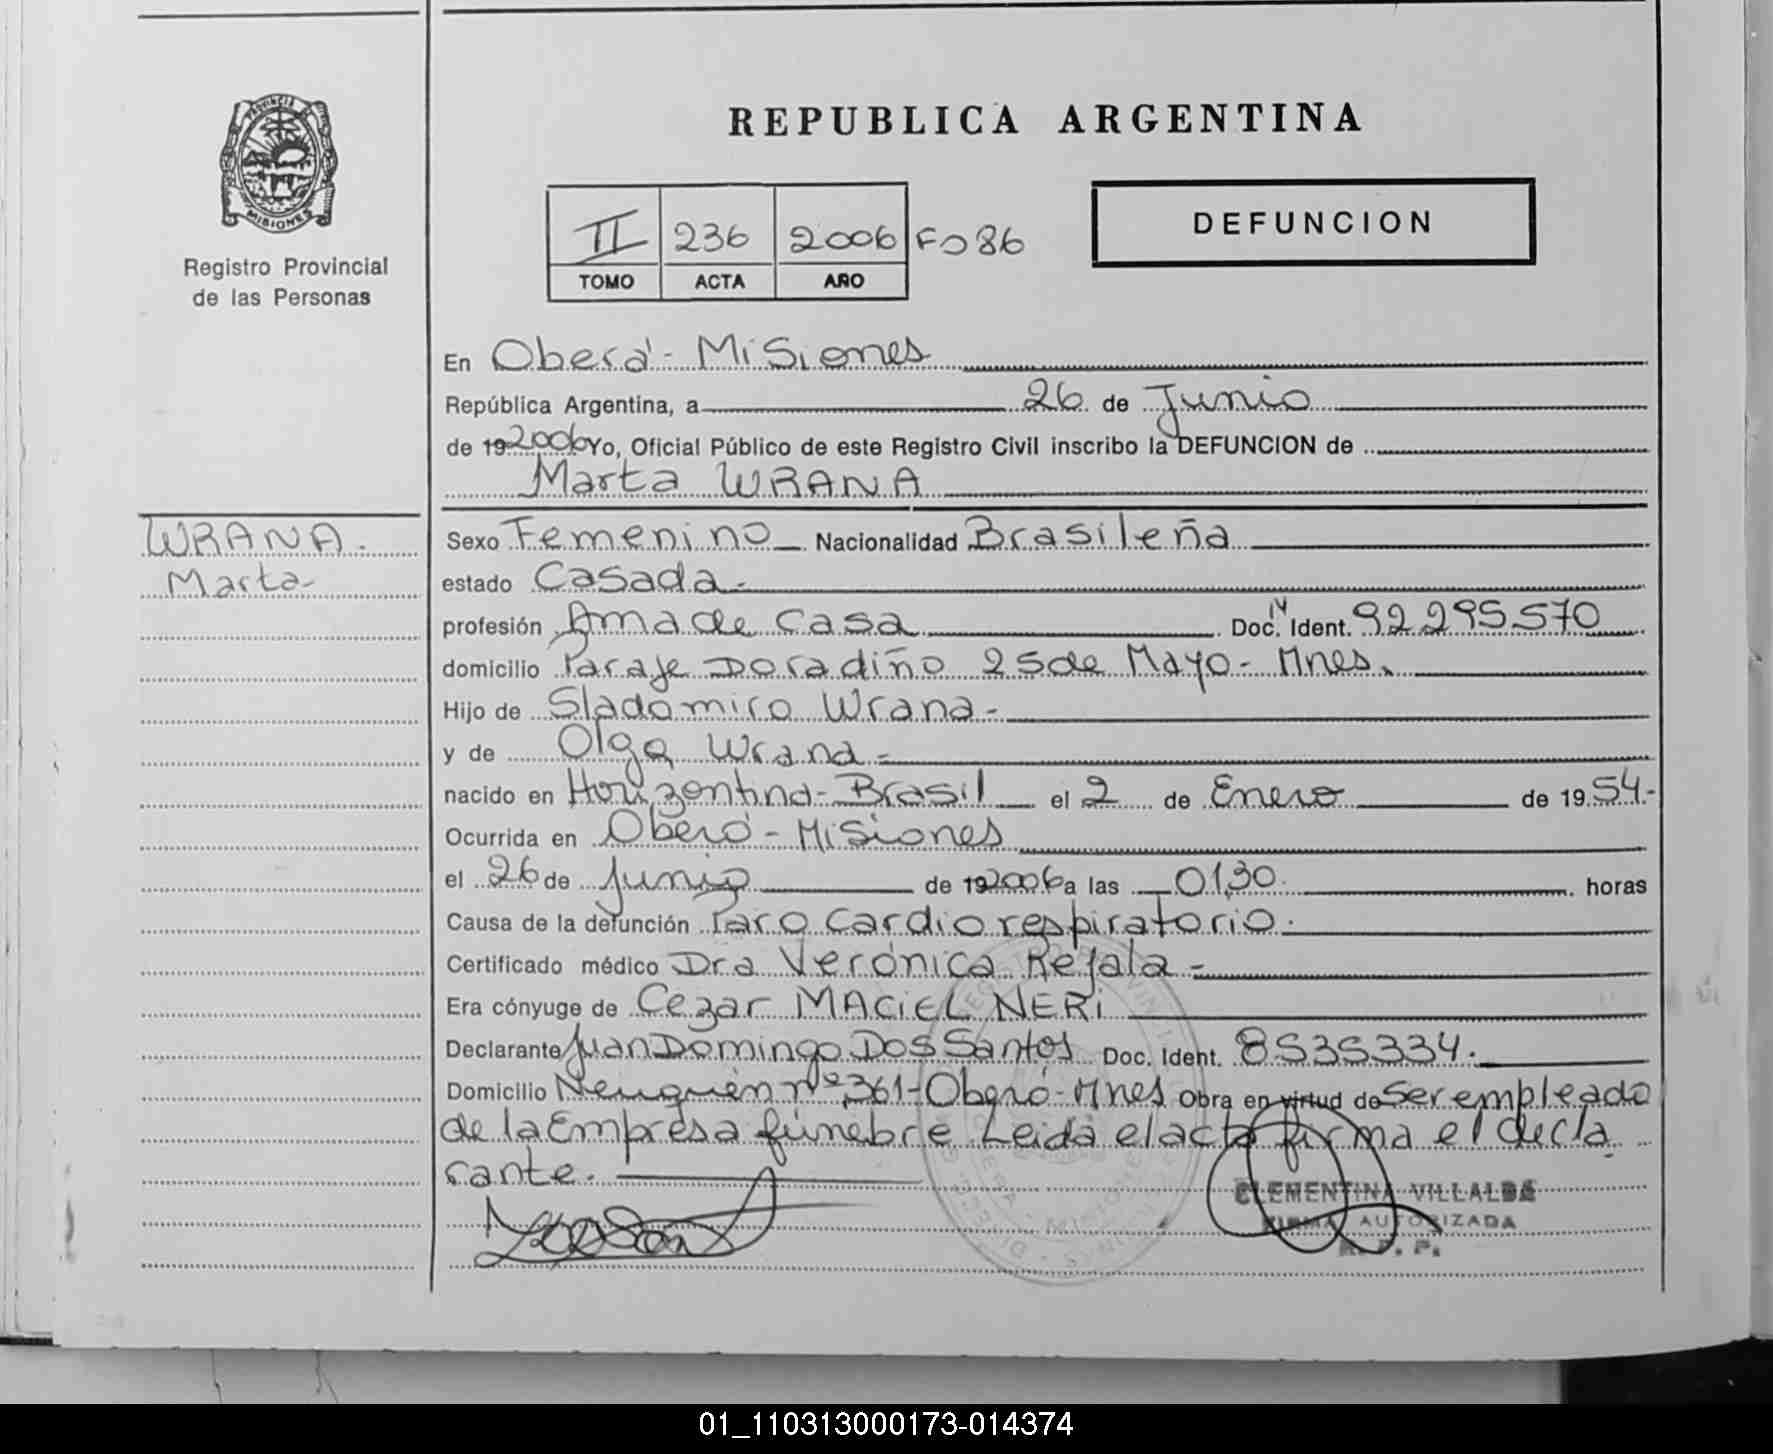 REPUBLICA ARGENTINA
PROVINCIA
MISIONES
Registro Provincial
de las Personas
II 236 2006 Fo 86
TOMO ACTA AÑO
DEFUNCION
En Oberá - Misiones
República Argentina, a 26 de Junio
de 192006 Yo, Oficial Público de este Registro Civil inscribo la DEFUNCION de
Marta WRANA
WRANA.
Marta-
Sexo Femenino Nacionalidad Brasileña
estado Casada -
profesión Ama de casa Doc. Ident. 92295570
domicilio Paraje Doradiño 25 de Mayo - Mnes.
Hijo de Sladomiro Wrana -
y de Olga Wrana -
nacido en Horizontina - Brasil el 2 de Enero de 1954.-
Ocurrida en Oberá - Misiones
el 26 de Junio de 192006 a las 01,30 horas
Causa de la defunción Paro Cardio respiratorio.
Certificado médico Dra Verónica Rejala -
Era cónyuge de Cezar MACIEL NERI
Declarante Juan Domingo Dos Santos Doc. Ident. 8535334.
Domicilio Neuquén nº 361 - Oberá - Mnes Obra en virtud de Ser empleado
de la Empresa fúnebre Leida el acta firma el decla
rante.
CLEMENTINA VILLALBA
FIRMA AUTORIZADA
R. P. P.
01_110313000173-014374